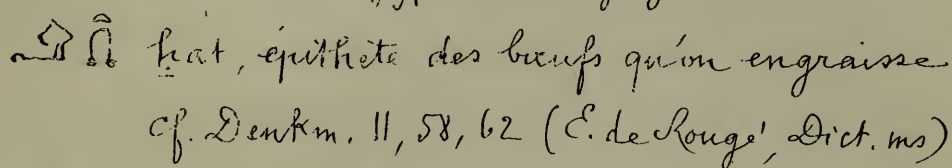 ḥat, épithète des bœufs qu'on engraisse
cf. Denkm. II, 58, 62 (E. de Rougé, Dict. ms)